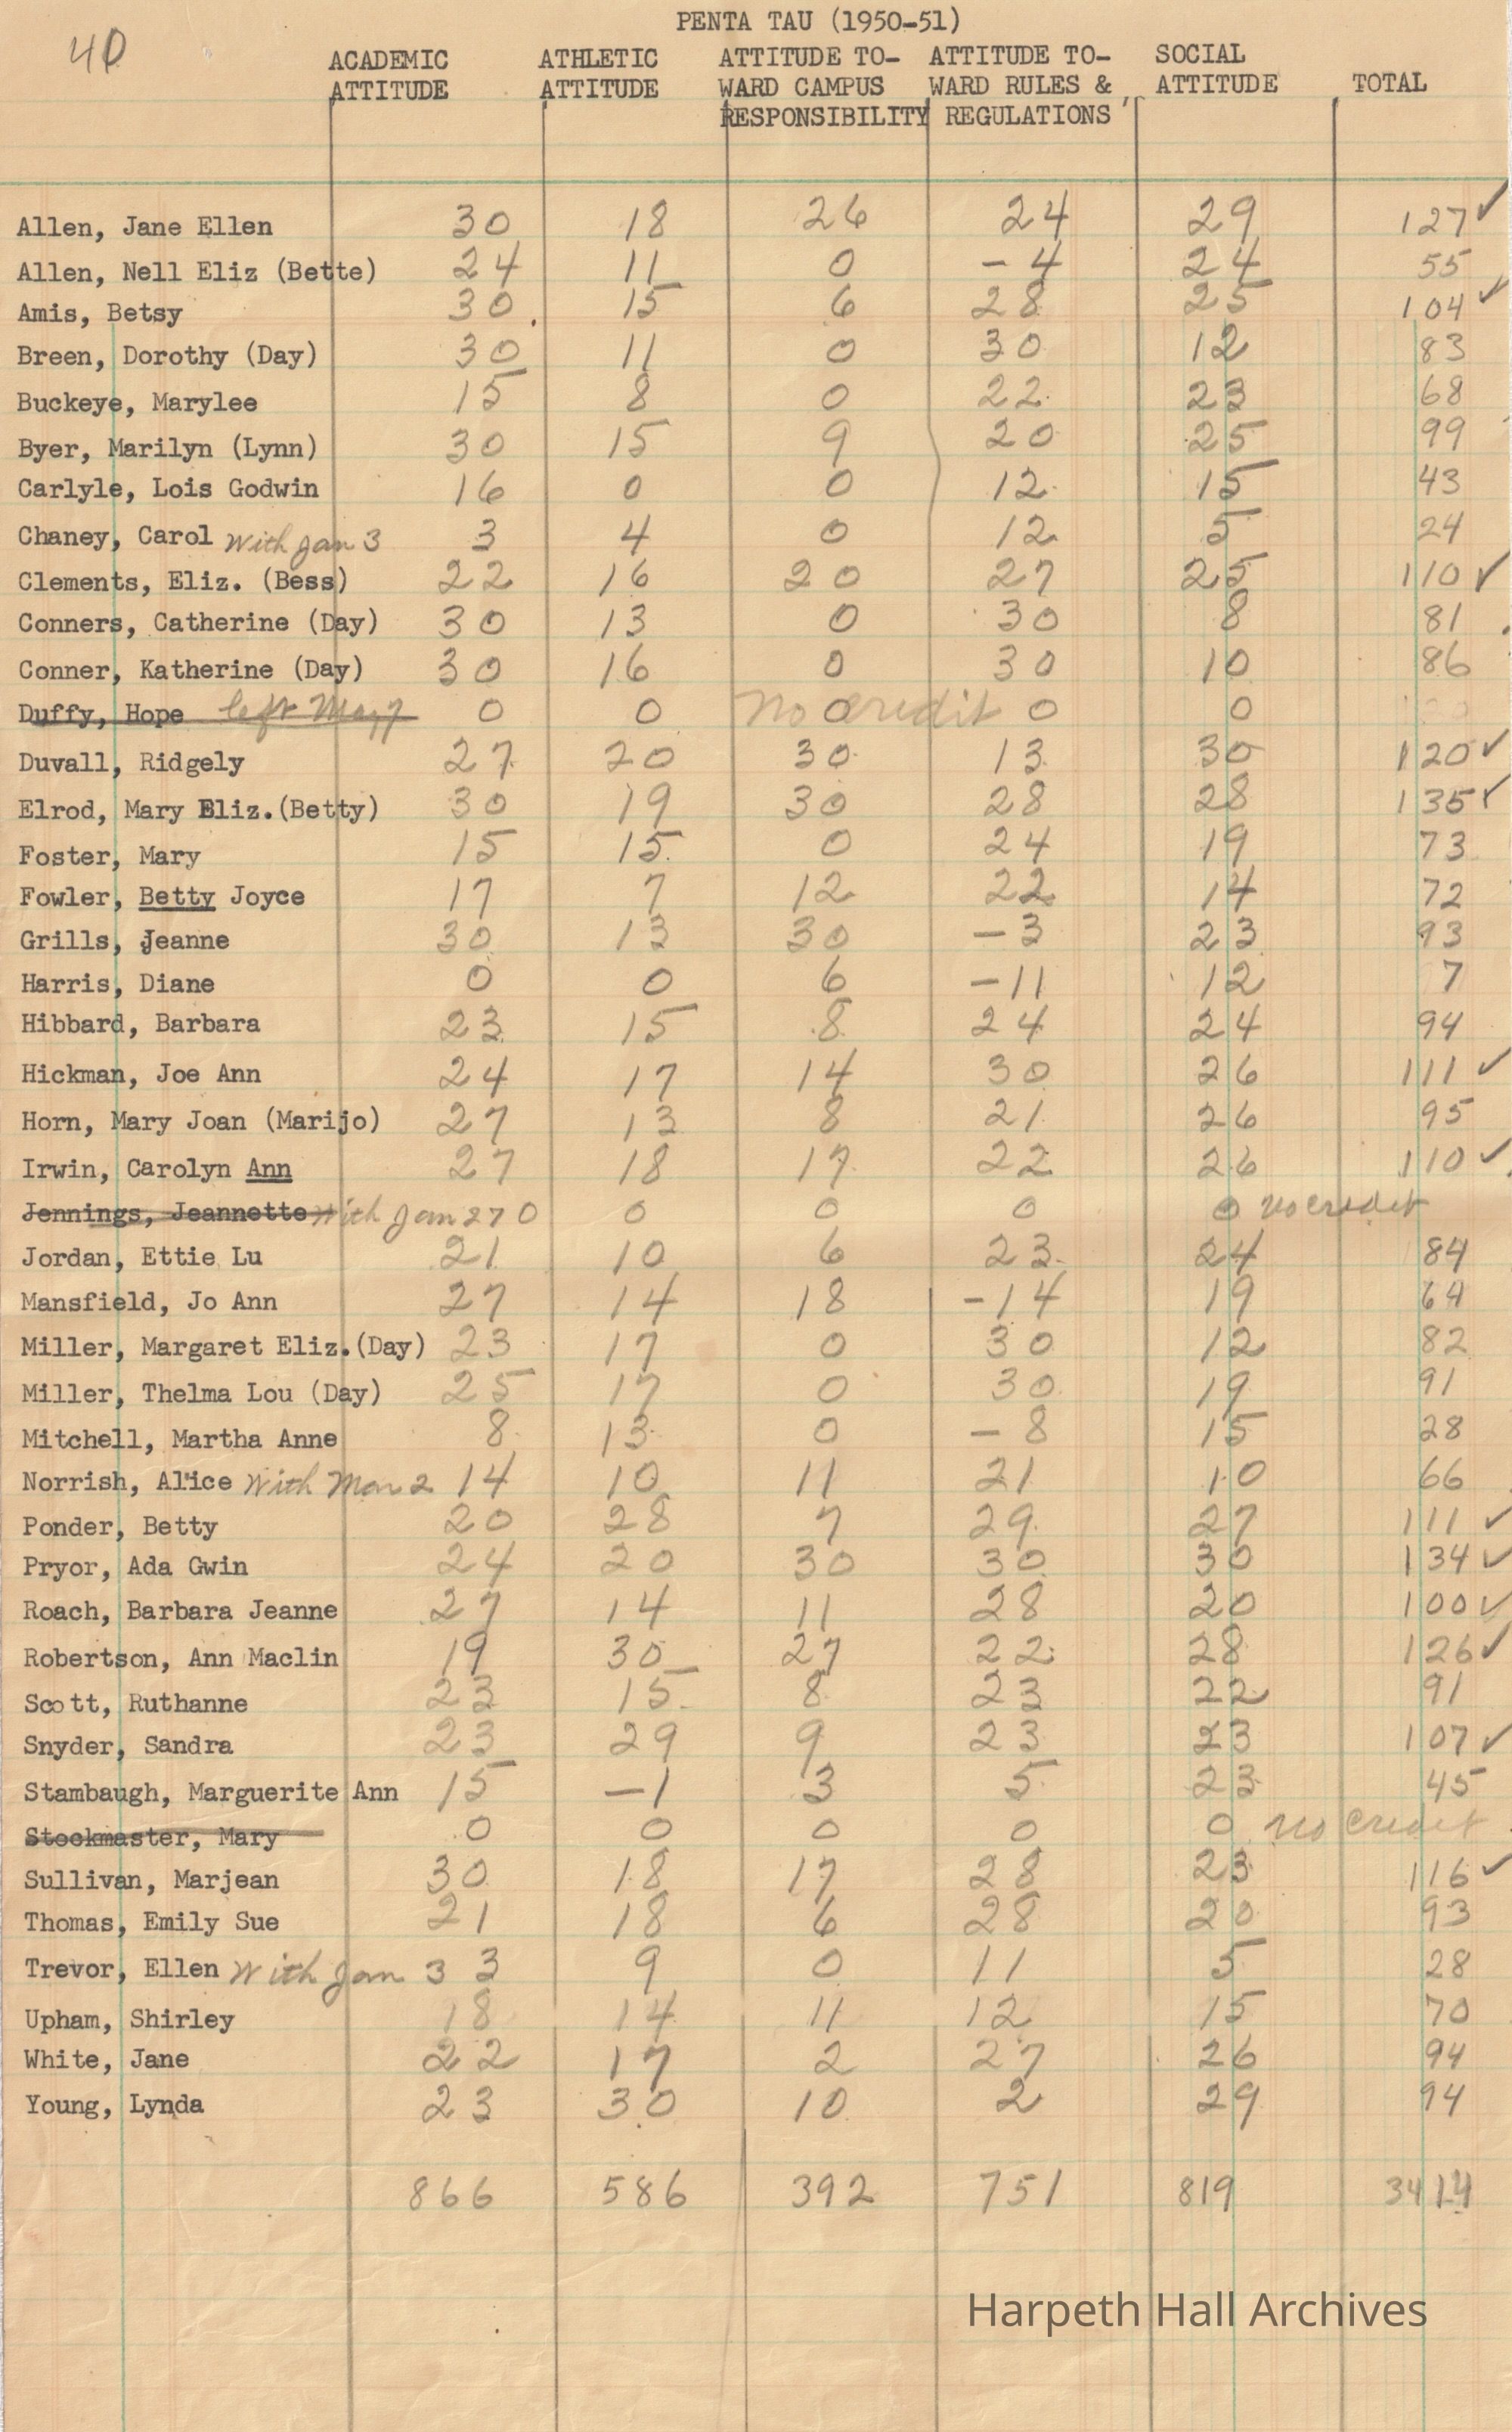 PENTA TAU (1950-51)
40
ACADEMIC ATHLETIC ATTITUDE TO- ATTITUDE TO- SOCIAL
ATTITUDE ATTITUDE WARD CAMPUS WARD RULES & ATTITUDE TOTAL
RESPONSIBILITY REGULATIONS
Allen, Jane Ellen 30 18 26 24 29 127 ✓
Allen, Nell Eliz (Bette) 24 11 0 -4 24 55
Amis, Betsy 30 15 6 28 25 104 ✓
Breen, Dorothy (Day) 30 11 0 30 12 83
Buckeye, Marylee 15 8 0 22 23 68
Byer, Marilyn (Lynn) 30 15 9 20 25 99
Carlyle, Lois Godwin 16 0 0 12 15 43
Chaney, Carol With Jan 3 3 4 0 12 5 24
Clements, Eliz. (Bess) 22 16 20 27 25 110 ✓
Conners, Catherine (Day) 30 13 0 30 8 81
Conner, Katherine (Day) 30 16 0 30 10 86
Duffy, Hope left May 0 0 No 0 credit 0 0
Duvall, Ridgely 27 20 30 13 30 120 ✓
Elrod, Mary Eliz.(Betty) 30 19 30 28 28 135 ✓
Foster, Mary 15 15 0 24 19 73
Fowler, Betty Joyce 17 7 12 22 14 72
Grills, Jeanne 30 13 30 -3 23 93
Harris, Diane 0 0 6 -11 12 7
Hibbard, Barbara 23 15 8 24 24 94
Hickman, Joe Ann 24 17 14 30 26 111 ✓
Horn, Mary Joan (Marijo) 27 13 8 21 26 95
Irwin, Carolyn Ann 27 18 17 22 26 110 ✓
Jennings, Jeannette With Jan 27 0 0 0 0 0 no credit
Jordan, Ettie Lu 21 10 6 23 24 84
Mansfield, Jo Ann 27 14 18 -14 19 64
Miller, Margaret Eliz.(Day) 23 17 0 30 12 82
Miller, Thelma Lou (Day) 25 17 0 30 19 91
Mitchell, Martha Anne 8 13 0 -8 15 28
Norrish, Alice With Mar 2 14 10 11 21 10 66
Ponder, Betty 20 28 7 29 27 111 ✓
Pryor, Ada Gwin 24 20 30 30 30 134 ✓
Roach, Barbara Jeanne 27 14 11 28 20 100 ✓
Robertson, Ann Maclin 19 30 27 22 28 126 ✓
Scott, Ruthanne 23 15 8 23 22 91
Snyder, Sandra 23 29 9 23 23 107 ✓
Stambaugh, Marguerite Ann 15 -1 3 5 23 45
Stockmaster, Mary 0 0 0 0 0 no credit
Sullivan, Marjean 30 18 17 28 23 116 ✓
Thomas, Emily Sue 21 18 6 28 20 93
Trevor, Ellen With Jan 3 3 9 0 11 5 28
Upham, Shirley 18 14 11 12 15 70
White, Jane 22 17 2 27 26 94
Young, Lynda 23 30 10 2 29 94
866 586 392 751 819 3414
Harpeth Hall Archives